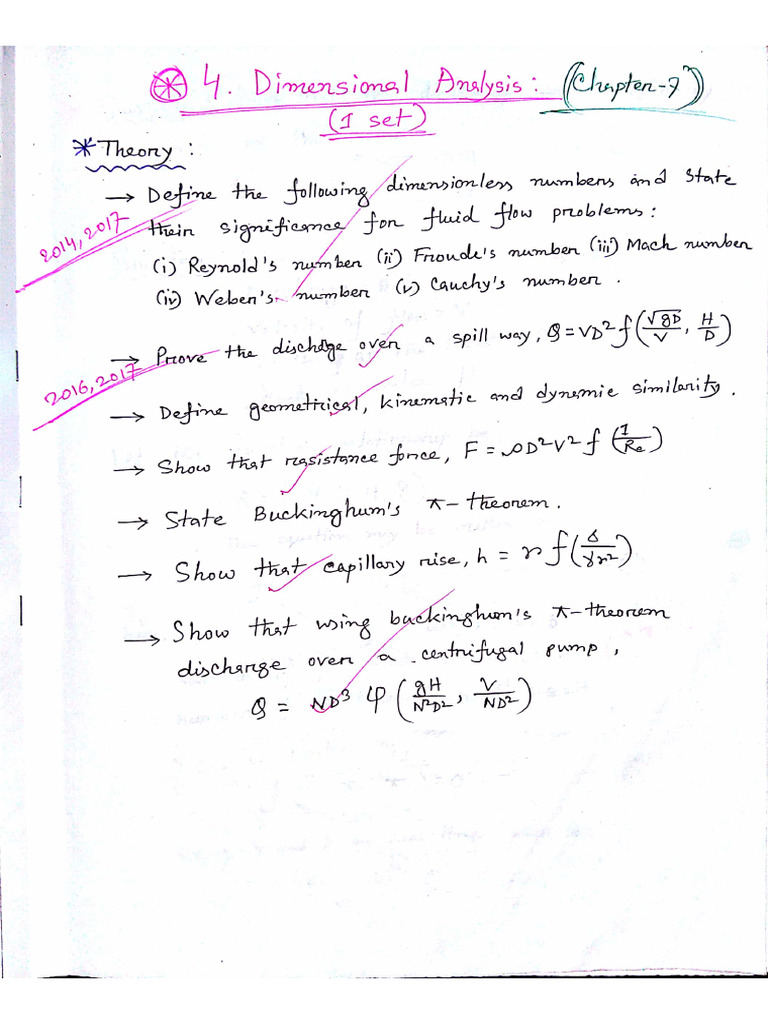 4. Dimensional Analysis: (Chapter-7)
(1 set)
* Theory:
→ Define the following dimensionless numbers and state
their significance for fluid flow problems:
2014, 2017
(i) Reynold's number (ii) Froude's number (iii) Mach number
(iv) Weber's number (v) Cauchy's number.
→ Prove the discharge over a spill way, Q = VD² f(√gD/V, H/D)
2016, 2017
→ Define geometrical, kinematic and dynamic similarity.
→ Show that resistance force, F = ρD²V² f(1/Re)
→ State Buckinghum's π-theorem.
→ Show that capillary rise, h = r f(σ/γr²)
→ Show that using buckinghum's π-theorem
discharge over a centrifugal pump,
Q = ND³ φ(gH/N²D², ν/ND²)